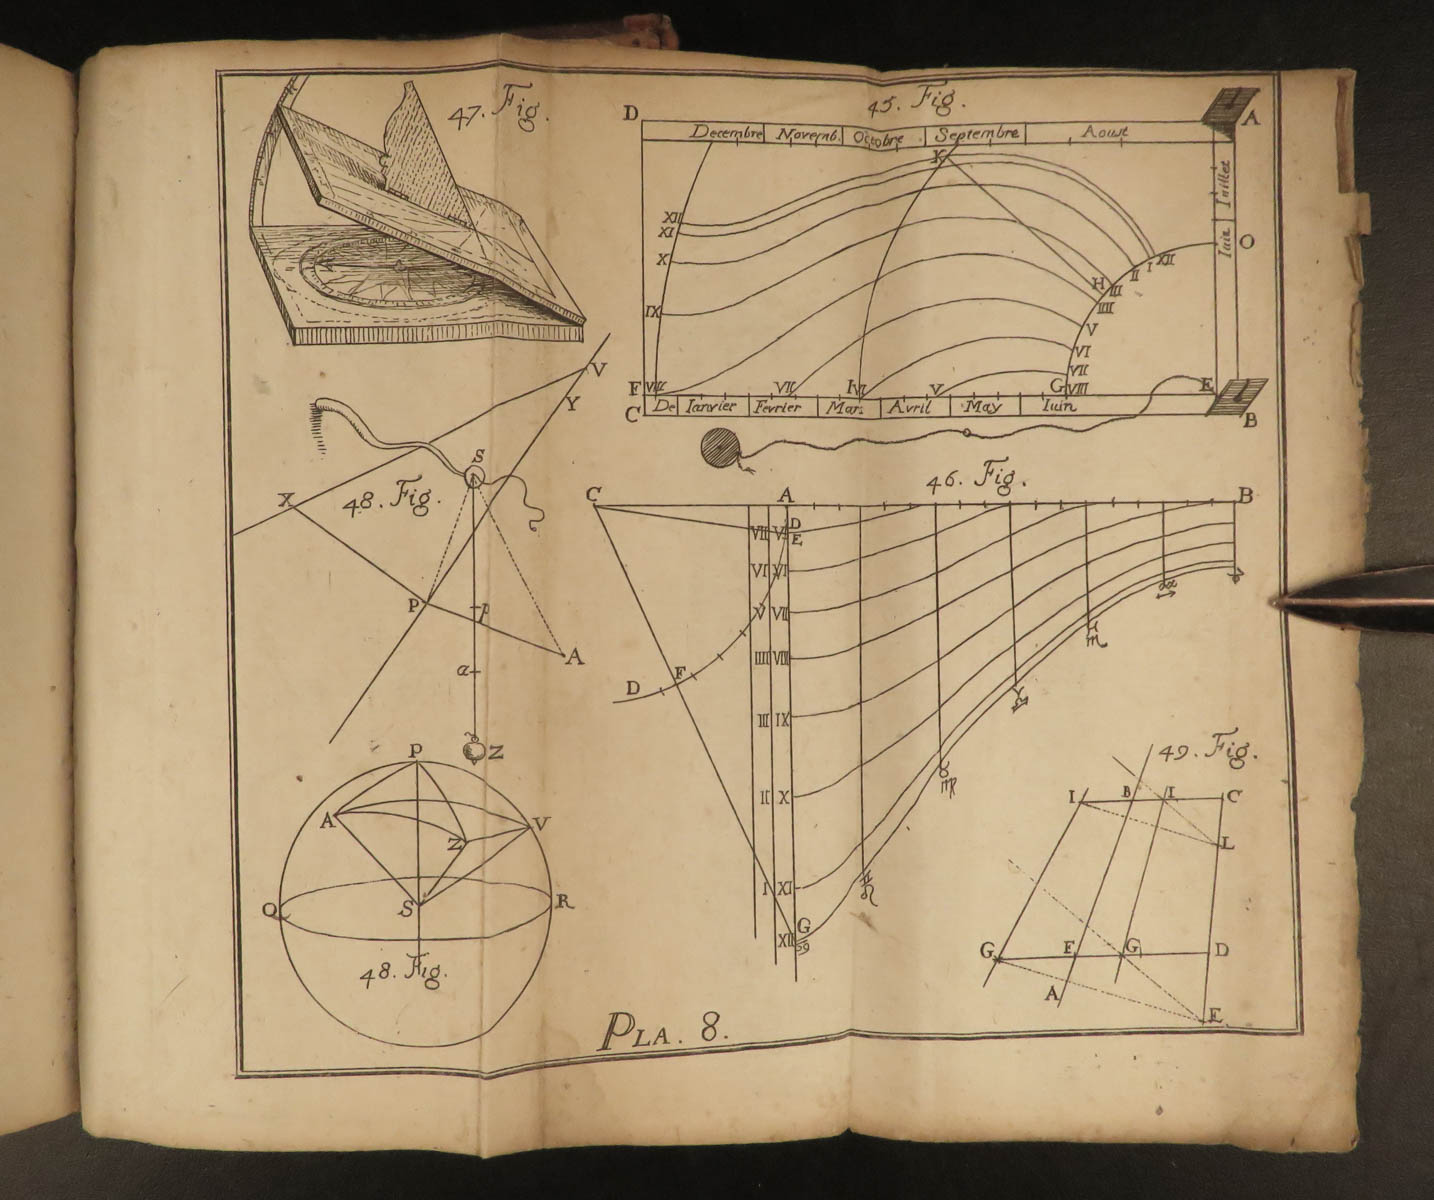 47. Fig.
45. Fig.
D
A
Decembre
Novemb.
Octobre
Septembre
Aoust
K
Iuillet
Iuin
O
XII
XI
X
IX
H
XII
I
II
III
IIII
V
VI
VII
VIII
F
VIII
VII
VI
V
G
E
C
De
Ianvier
Fevrier
Mars
Avril
May
Iuin
B
V
Y
S
X
48. Fig.
P
P
A
a
Z
46. Fig.
C
A
B
D
E
VII
VI
V
IIII
III
II
I
VI
VII
VIII
IX
X
XI
XII
D
F
G
♋
♊
♌
♉
♍
♈
♎
49. Fig.
I
B
I
C
L
G
F
G
D
A
E
P
A
Z
V
Q
S
R
48. Fig.
PLA. 8.